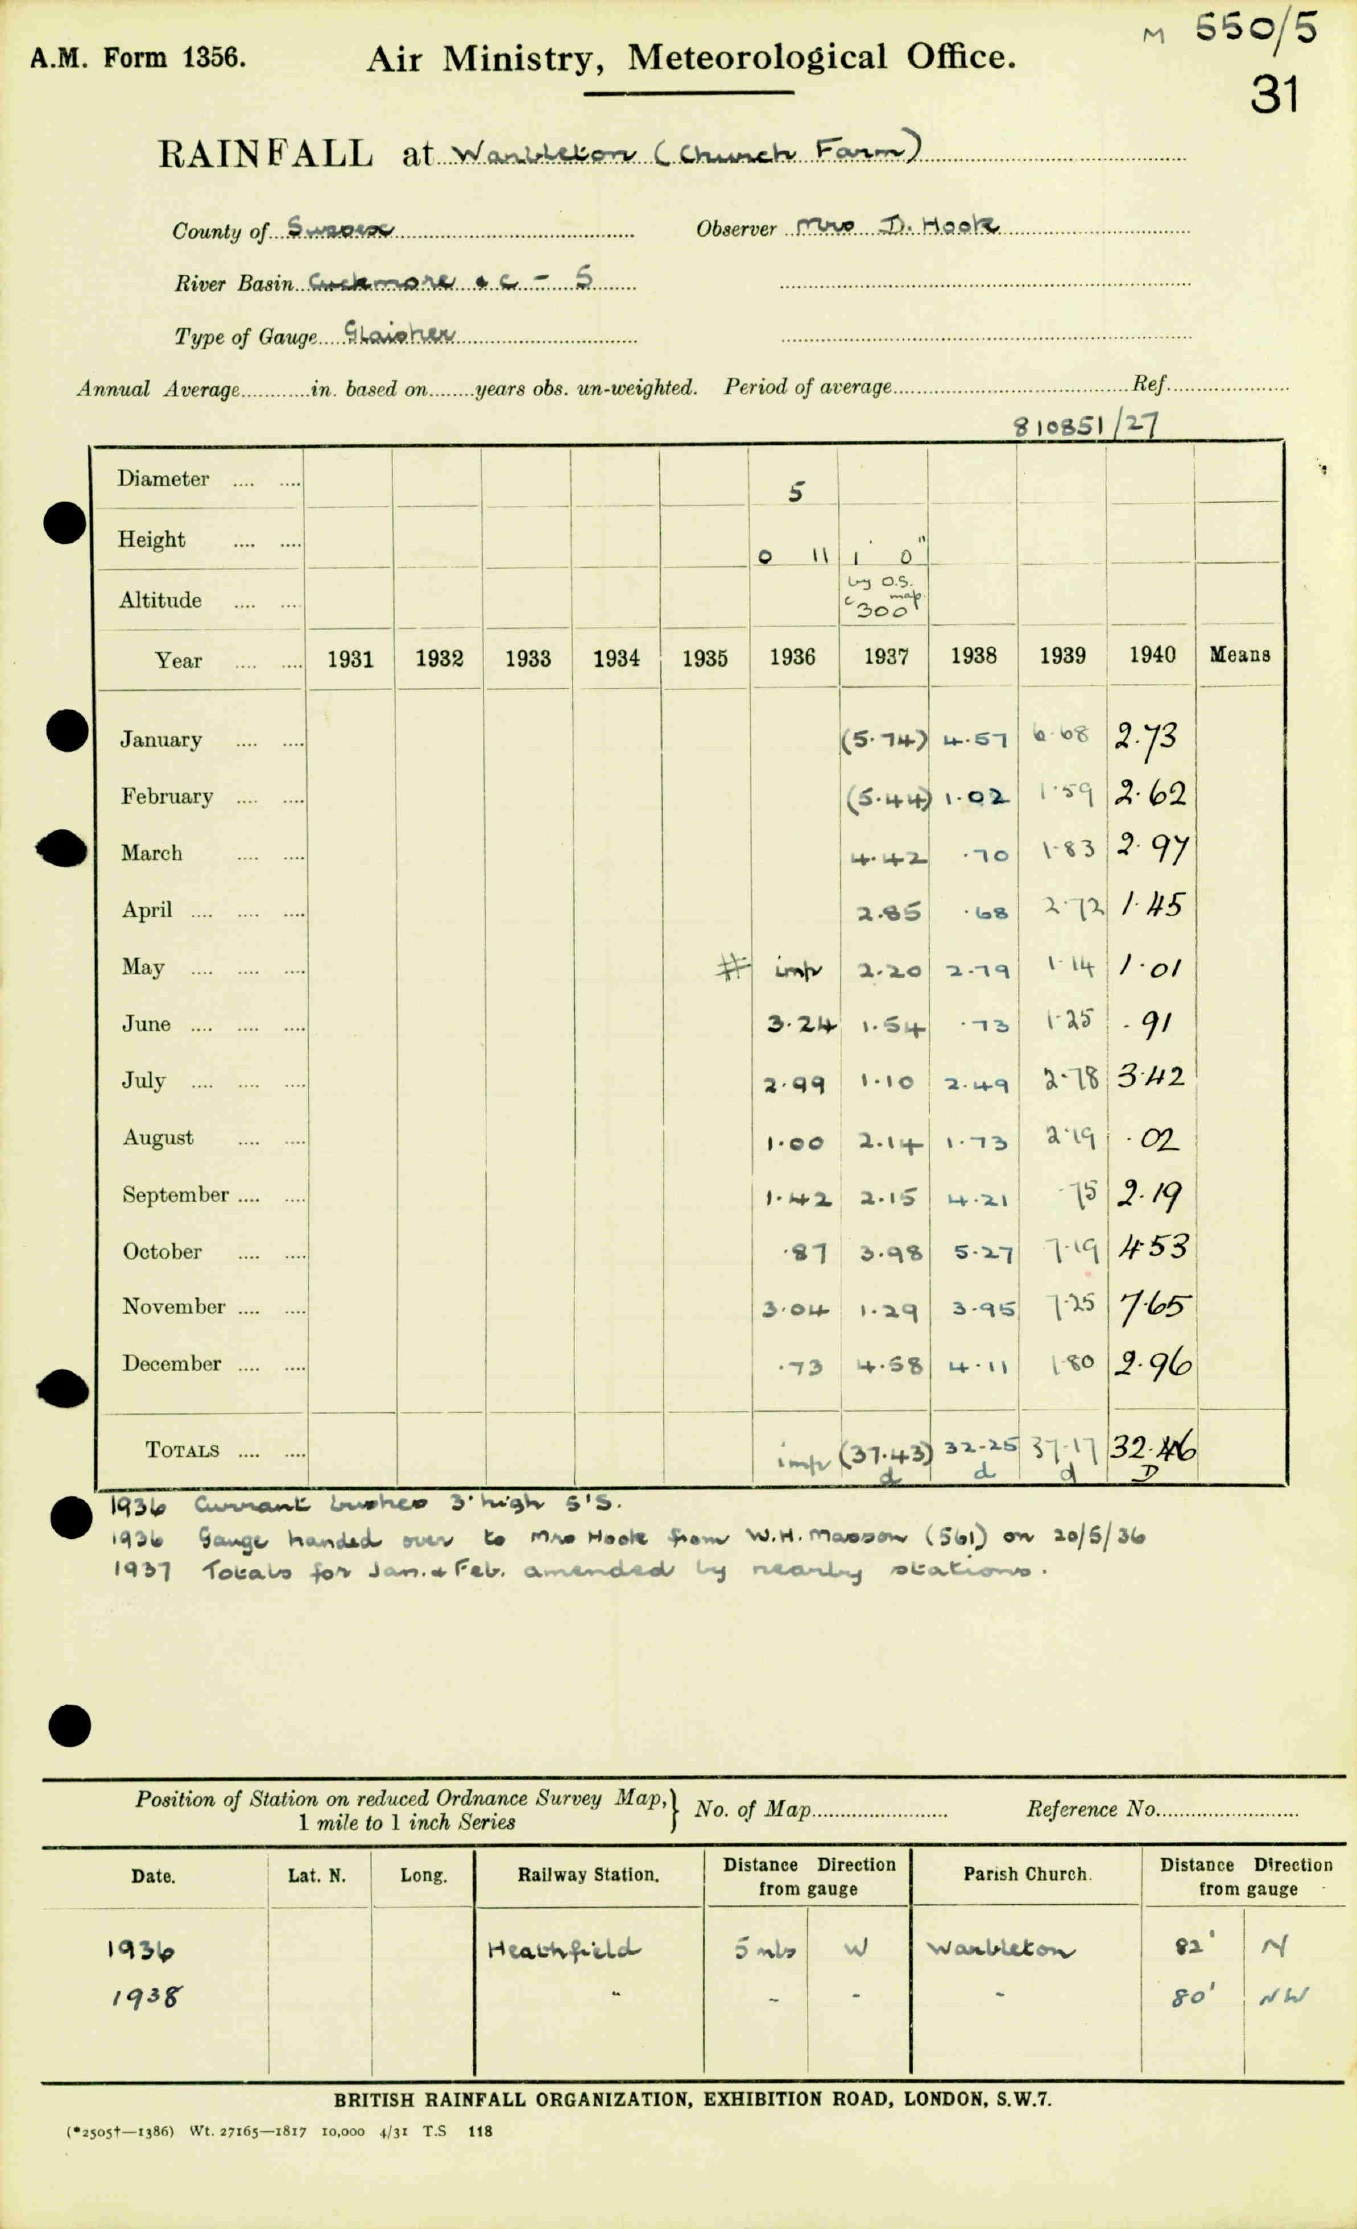 M 550/5
A.M. Form 1356. Air Ministry, Meteorological Office.
31
RAINFALL at Warbleton (Church Farm)
County of Sussex Observer Mrs D. Hook
River Basin Cuckmore &c - S
Type of Gauge Glaisher
Annual Average in. based on years obs. un-weighted. Period of average Ref.
810851/27
Diameter 5
Height 0 11 1' 0"
Altitude by O.S. map c 300'
Year 1931 1932 1933 1934 1935 1936 1937 1938 1939 1940 Means
January (5.74) 4.57 6.68 2.73
February (5.44) 1.02 1.59 2.62
March 4.42 .70 1.83 2.97
April 2.85 .68 2.72 1.45
May # imp 2.20 2.79 1.14 1.01
June 3.24 1.54 .73 1.25 .91
July 2.99 1.10 2.49 2.78 3.42
August 1.00 2.14 1.73 2.19 .02
September 1.42 2.15 4.21 .75 2.19
October .87 3.98 5.27 7.19 4.53
November 3.04 1.29 3.95 7.25 7.65
December .73 4.58 4.11 1.80 2.96
TOTALS imp (37.43) 32.25 37.17 32.46
d d d D
1936 Currant bushes 3' high 5'S.
1936 Gauge handed over to Mrs Hook from W.H. Masson (561) on 20/5/36
1937 Totals for Jan. & Feb. amended by nearby stations.
Position of Station on reduced Ordnance Survey Map, } No. of Map Reference No.
1 mile to 1 inch Series
Date. Lat. N. Long. Railway Station. Distance Direction from gauge Parish Church. Distance Direction from gauge
1936 Heathfield 5 mls W Warbleton 82' N
1938 " - - - 80' NW
BRITISH RAINFALL ORGANIZATION, EXHIBITION ROAD, LONDON, S.W.7.
(*2505†—1386) Wt. 27165—1817 10,000 4/31 T.S 118